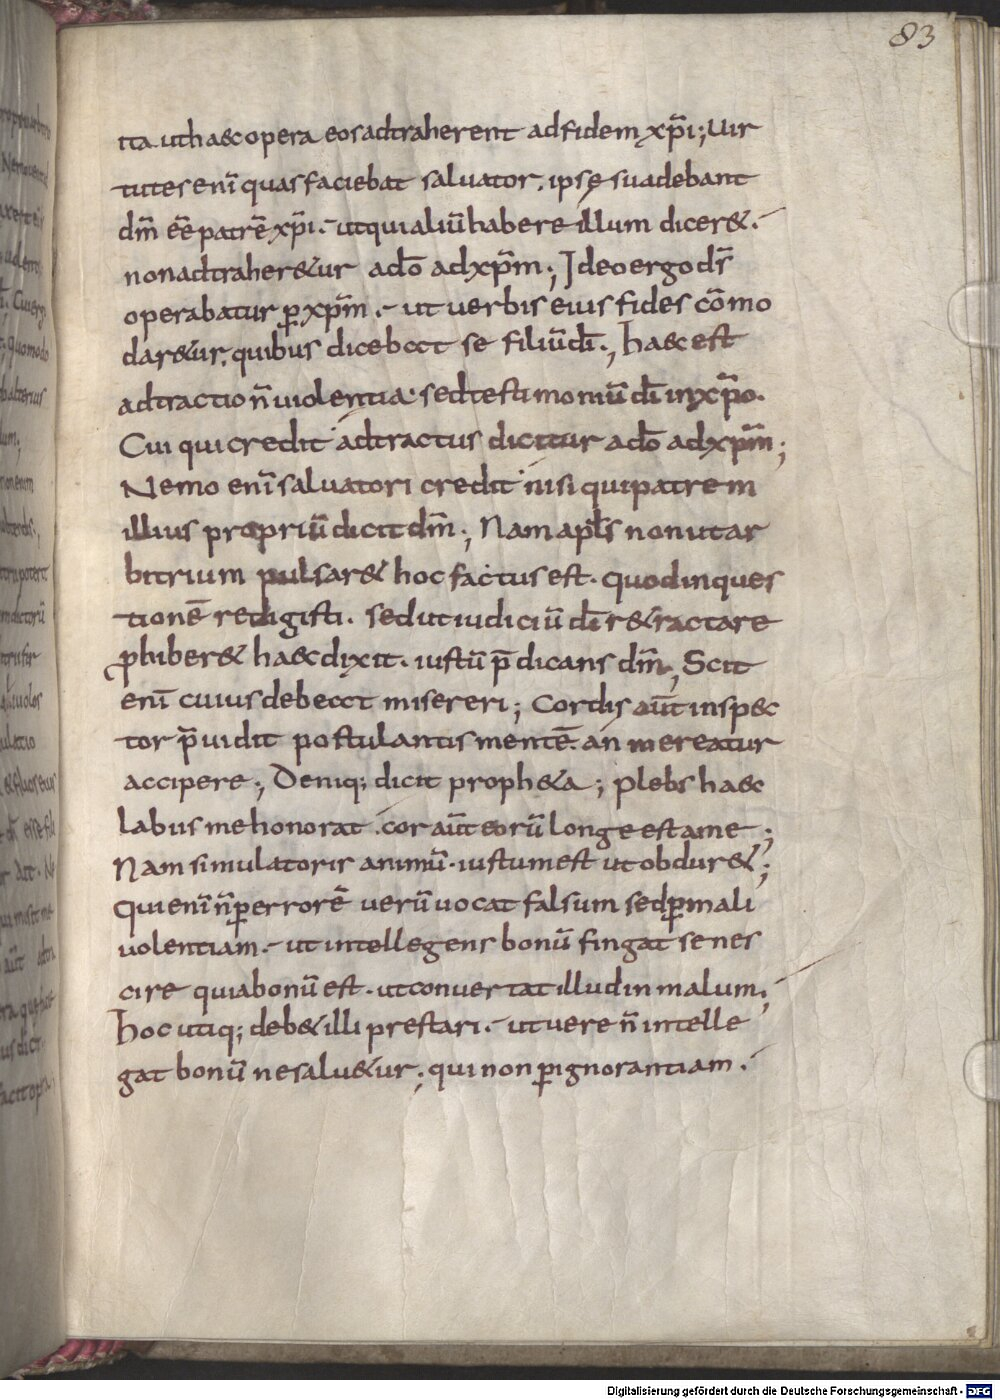 83
ita ut haec opera eos adtraherent ad fidem xp̄i; Uir
tutes enī quas faciebat saluator, ipsę suadebant
dm̄ eē patrē xp̄i. ut qui aliū habere illum dicer&.
non adtraher&ur ad dō ad xp̄m; Ideo ergo ds̄
operabatur p̄ xp̄m. ut uerbis eius fides cōmo
dar&ur, quibus dicebat se filiū dī; haec est
adtractio n̄ uiolentia. sed testimoniū dī in xp̄o.
Cui qui credit adtractus dicitur a dō ad xp̄m;
Nemo enī saluatori credit nisi qui patrem
illius propriū dicit dm̄; Nam apl̄s non ut ar
bitrium pulsar& hoc factus est. quod in ques
tionē redigisti. sed ut iudiciū dī r&ractare
ꝓhiber& haec dixit. iustū p̄dicans dm̄; Scit
enī cuius debeat misereri; Cordis aūt inspec
tor p̄uidit postulantis mentē. an mereatur
accipere; Deniq; dicit proph&a; Plebs haec
labiis me honorat. cor aūt eorū longe est a me;
Nam simulatoris animū. iustum est ut obdur&;
Qui enī n̄ per errorē uerū uocat falsum sed p̄ mali
uolentiam. ut intellegens bonū fingat se nes
cire quia bonū est. ut conuertat illud in malum;
hoc utiq; deb& illi prestari. ut uere n̄ intelle
gat bonū ne salu&ur; qui non p̄ ignorantiam.
Digitalisierung gefördert durch die Deutsche Forschungsgemeinschaft - DFG